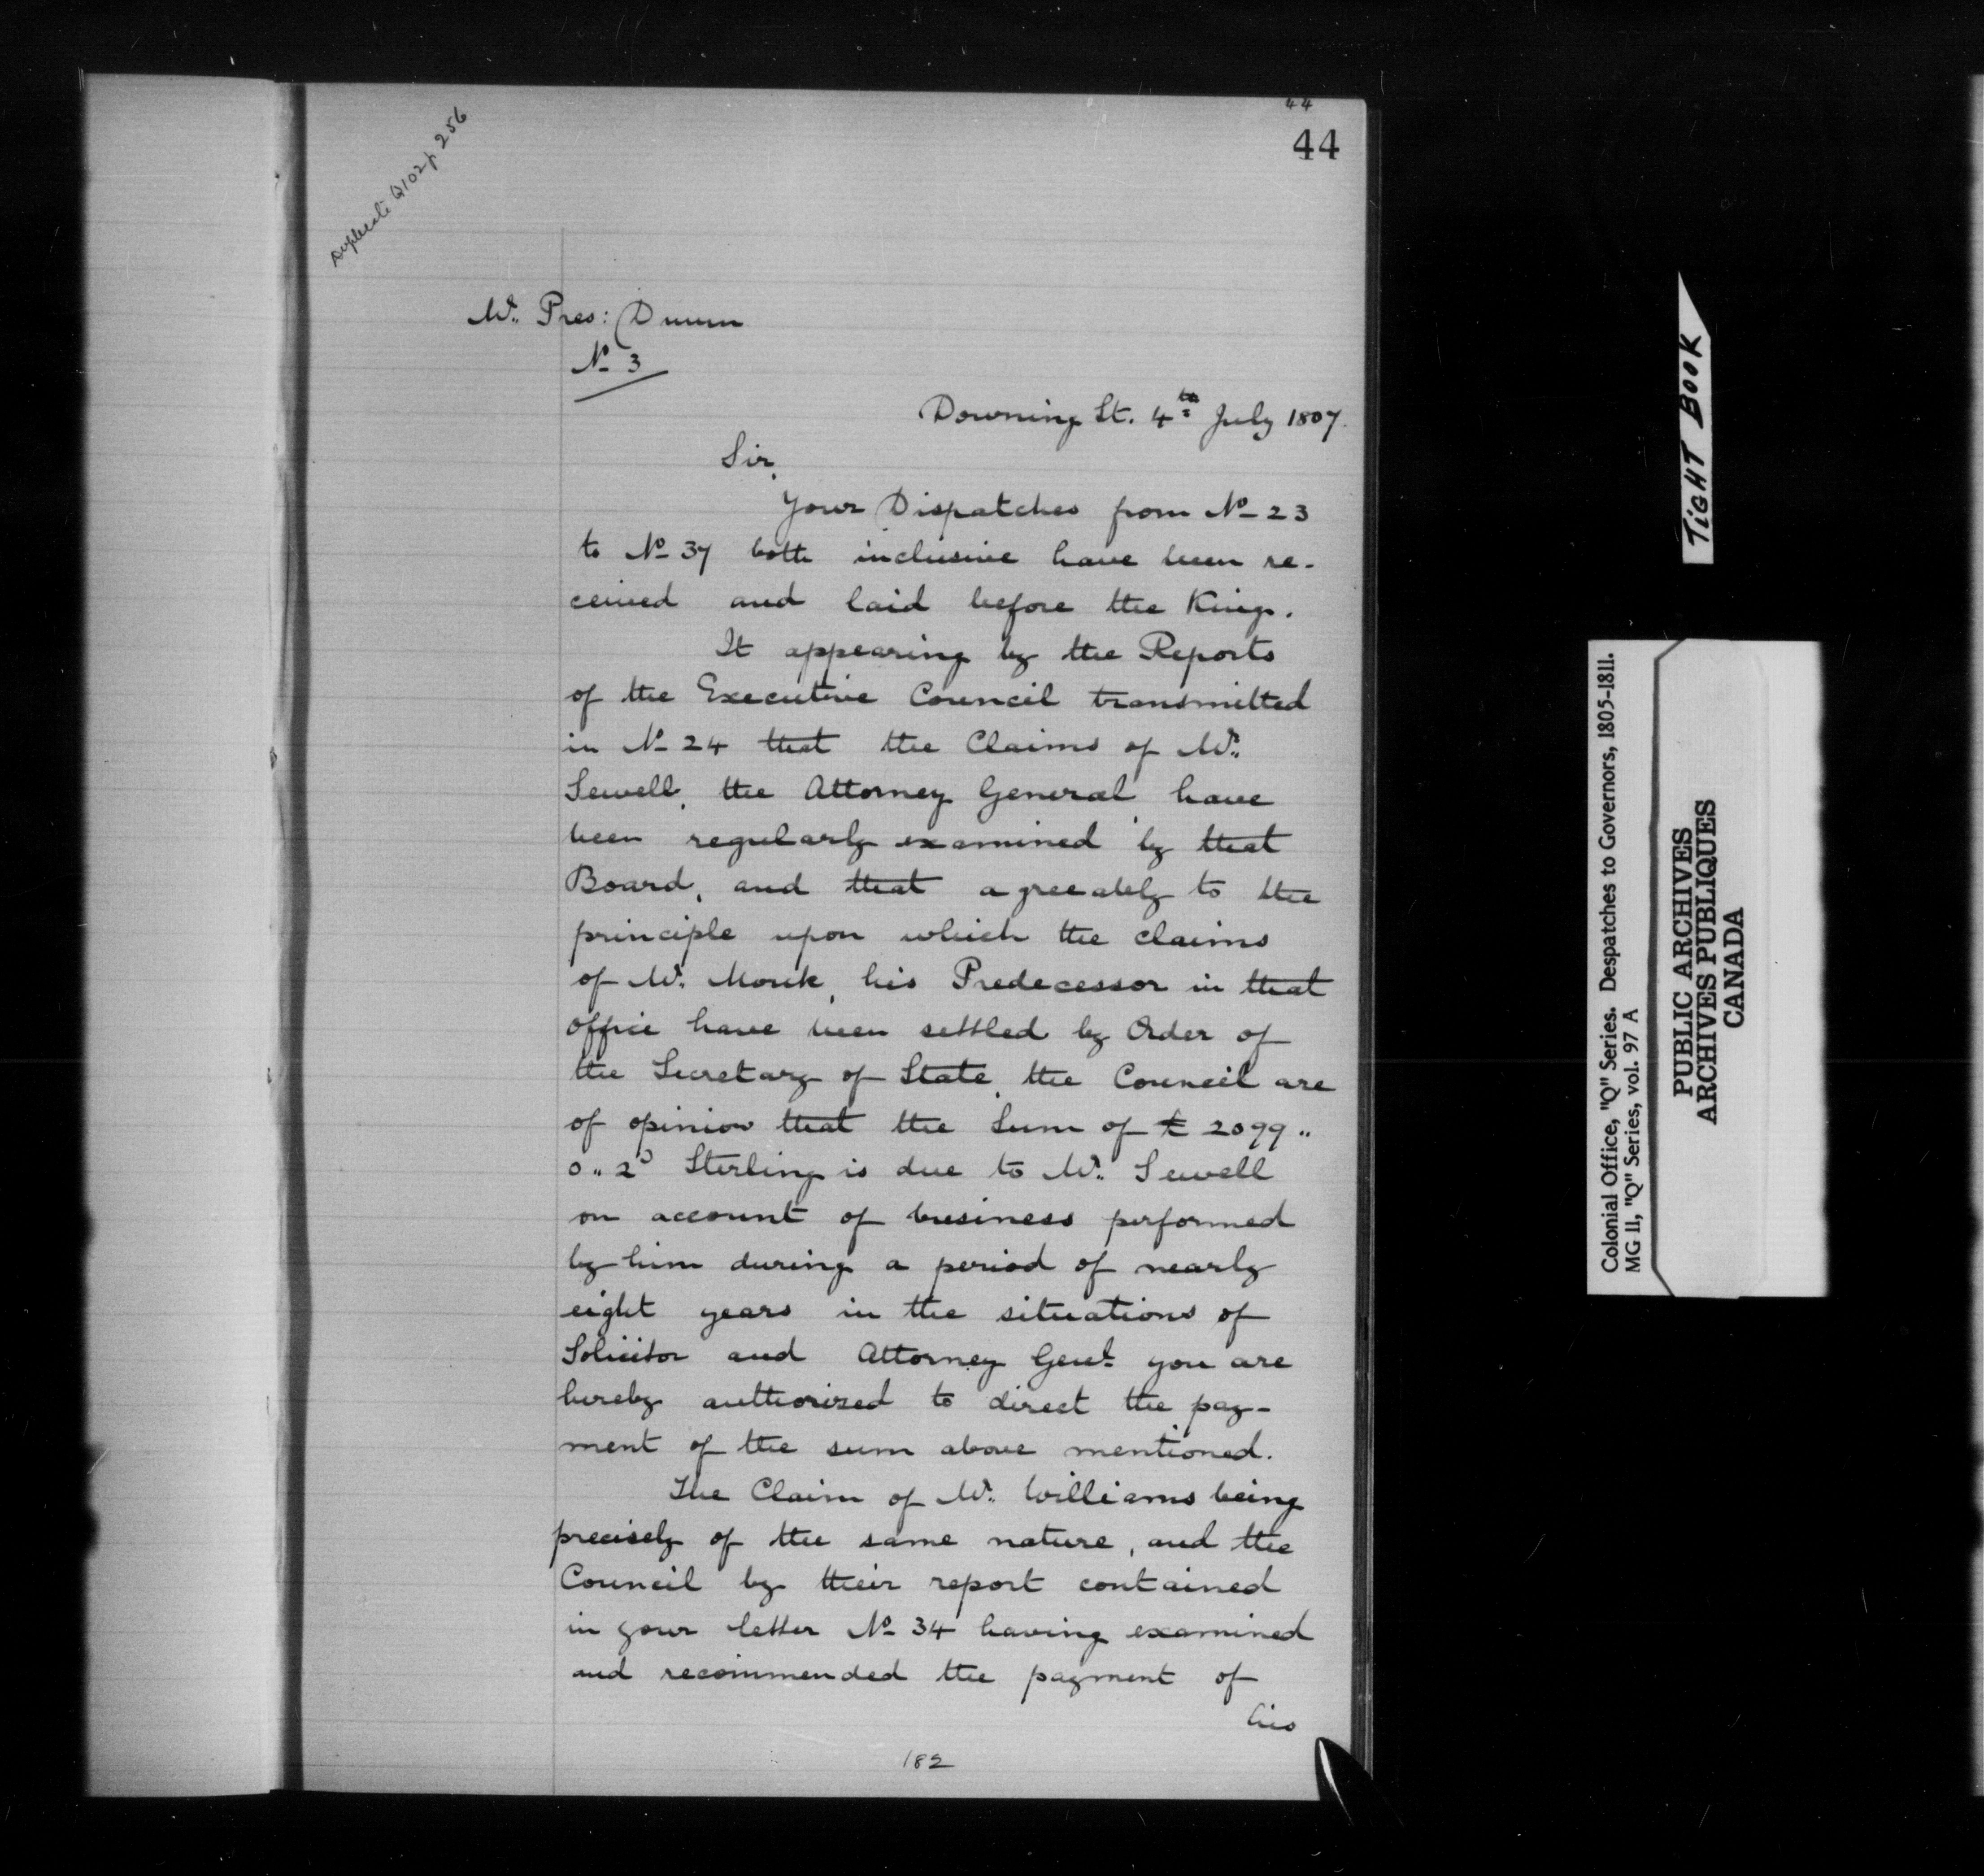 44
44
Duplicate Q102 p 256
Mr. Pres: Dunn
No 3
Downing St. 4th July 1807.
Sir,
Your Dispatches from No 23
to No 37 both inclusive have been re-
ceived and laid before the King.
It appearing by the Reports
of the Executive Council transmitted
in No 24 that the Claims of Mr.
Sewell, the Attorney General have
been regularly examined by that
Board, and that agreeably to the
principle upon which the claims
of Mr. Monk, his Predecessor in that
office have been settled by Order of
the Secretary of State, the Council are
of opinion that the Sum of £ 2099 "
0 " 2d Sterling is due to Mr. Sewell
on account of business performed
by him during a period of nearly
eight years in the situations of
Solicitor and Attorney Genl. you are
hereby authorized to direct the pay-
ment of the sum above mentioned.
The Claim of Mr. Williams being
precisely of the same nature, and the
Council by their report contained
in your letter No 34 having examined
and recommended the payment of
his
182
TIGHT BOOK
Colonial Office, "Q" Series. Despatches to Governors, 1805-1811.
MG 11, "Q" Series, vol. 97 A
PUBLIC ARCHIVES
ARCHIVES PUBLIQUES
CANADA